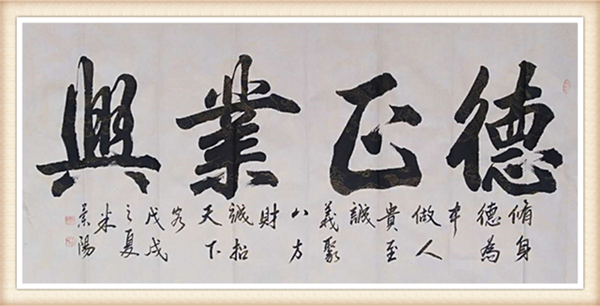 德正業興
脩身
德為
本
做人
貴至
誠
義聚
八方
財
誠招
天下
客
戊戌
之夏
米
景陽